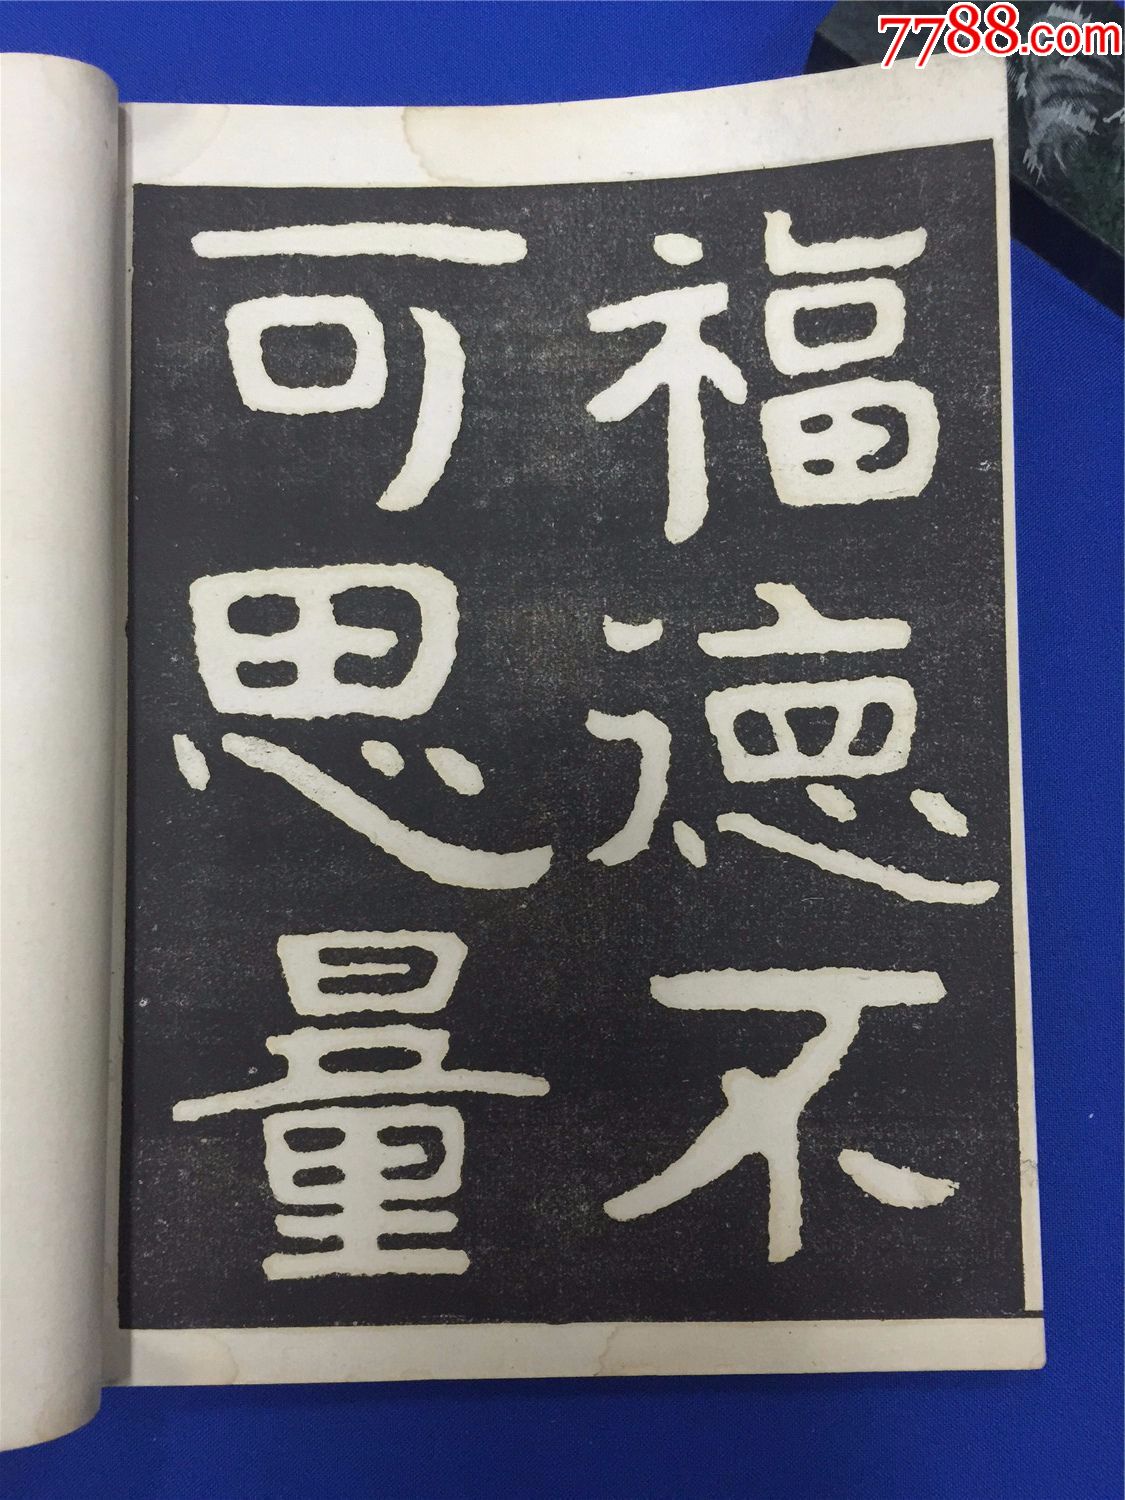 福德不
可思量
7788.com